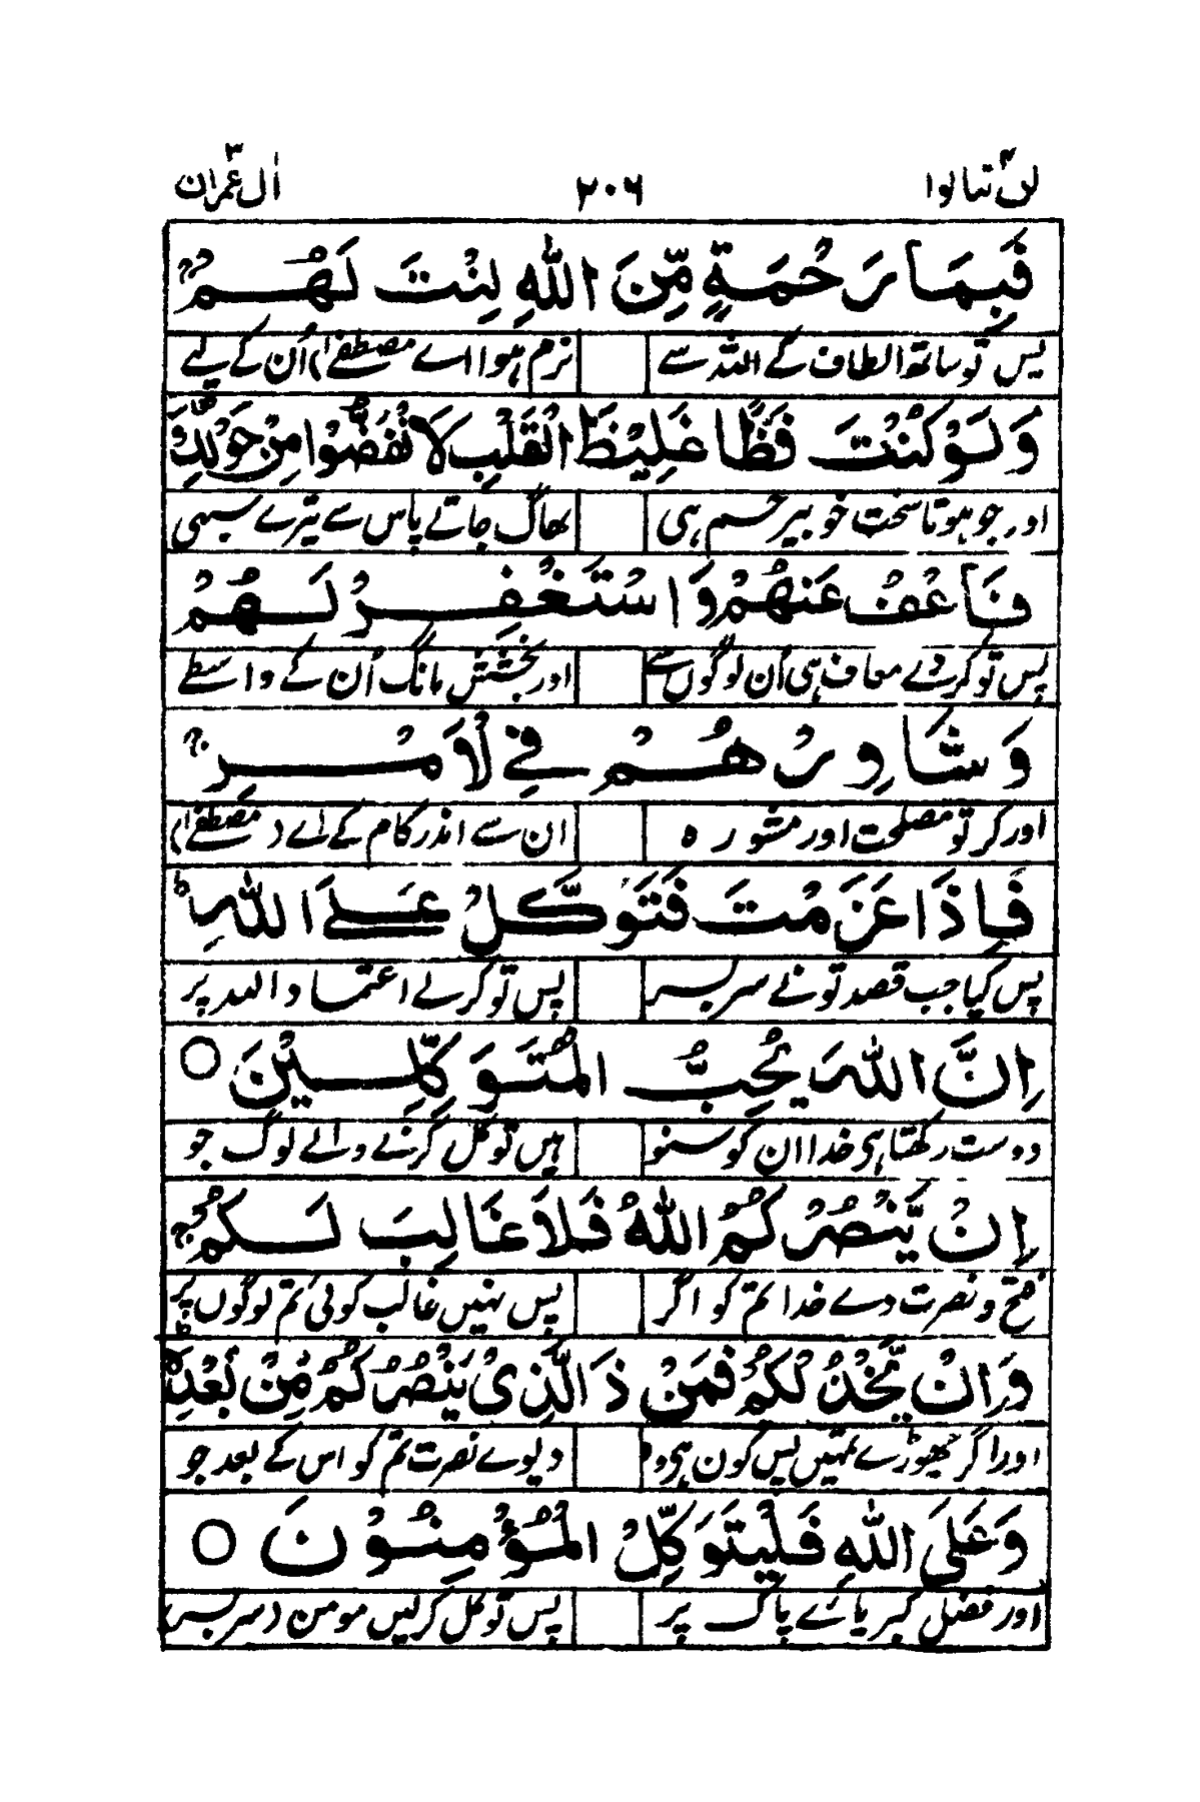 لن تنالوا ۴ ۲۰۶ اٰل عمران ۳
فَبِمَا رَحْمَةٍ مِّنَ اللّٰهِ لِنْتَ لَهُمْ ۚ
پس تو ساتھ الطاف کے اللہ سے نرم ہوا اے مصطفےٰ) اُن کے لیے
وَلَوْ كُنْتَ فَظًّا غَلِيْظَ الْقَلْبِ لَا نْفَضُّوْا مِنْ حَوْلِكَ
اور جو ہوتا سخت خو بیرحم ہی بھاگ جاتے پاس سے تیرے سبھی
فَاعْفُ عَنْهُمْ وَاسْتَغْفِرْ لَهُمْ
پس تو کر دے معاف ہی اُن لوگوں سے اور بخشش مانگ اُن کے واسطے
وَشَاوِرْهُمْ فِي لْاَمْرِ ۚ
اور کر تو مصلحت اور مشورہ ان سے اندر کام کے اے (مصطفےٰ)
فَاِذَا عَزَمْتَ فَتَوَكَّلْ عَلَى اللّٰهِ ؕ
پس کیا جب قصد تو نے سر بسر پس تو کر لے اعتماد اللہ پر
اِنَّ اللّٰهَ يُحِبُّ الْمُتَوَكِّلِيْنَ ○
دوست رکھتا ہی خدا ان کو سنو ہیں توکل کرنے والے لوگ جو
اِنْ يَّنْصُرْكُمُ اللّٰهُ فَلَا غَالِبَ لَكُمْ ۚ
فتح و نصرت دے خدا تم کو اگر پس نہیں غالب کوئی تم لوگوں پر
وَاِنْ يَّخْذُلْكُمْ فَمَنْ ذَا الَّذِيْ يَنْصُرُكُمْ مِّنْ بَعْدِهٖ ؕ
اور اگر چھوڑے تمہیں پس کون ہی وہ دیوے نصرت تم کو اس کے بعد جو
وَعَلَى اللّٰهِ فَلْيَتَوَكَّلِ الْمُؤْمِنُوْنَ ○
اور فضل کبریائے پاک پر پس توکل کر لیں مومن (سر بسر)